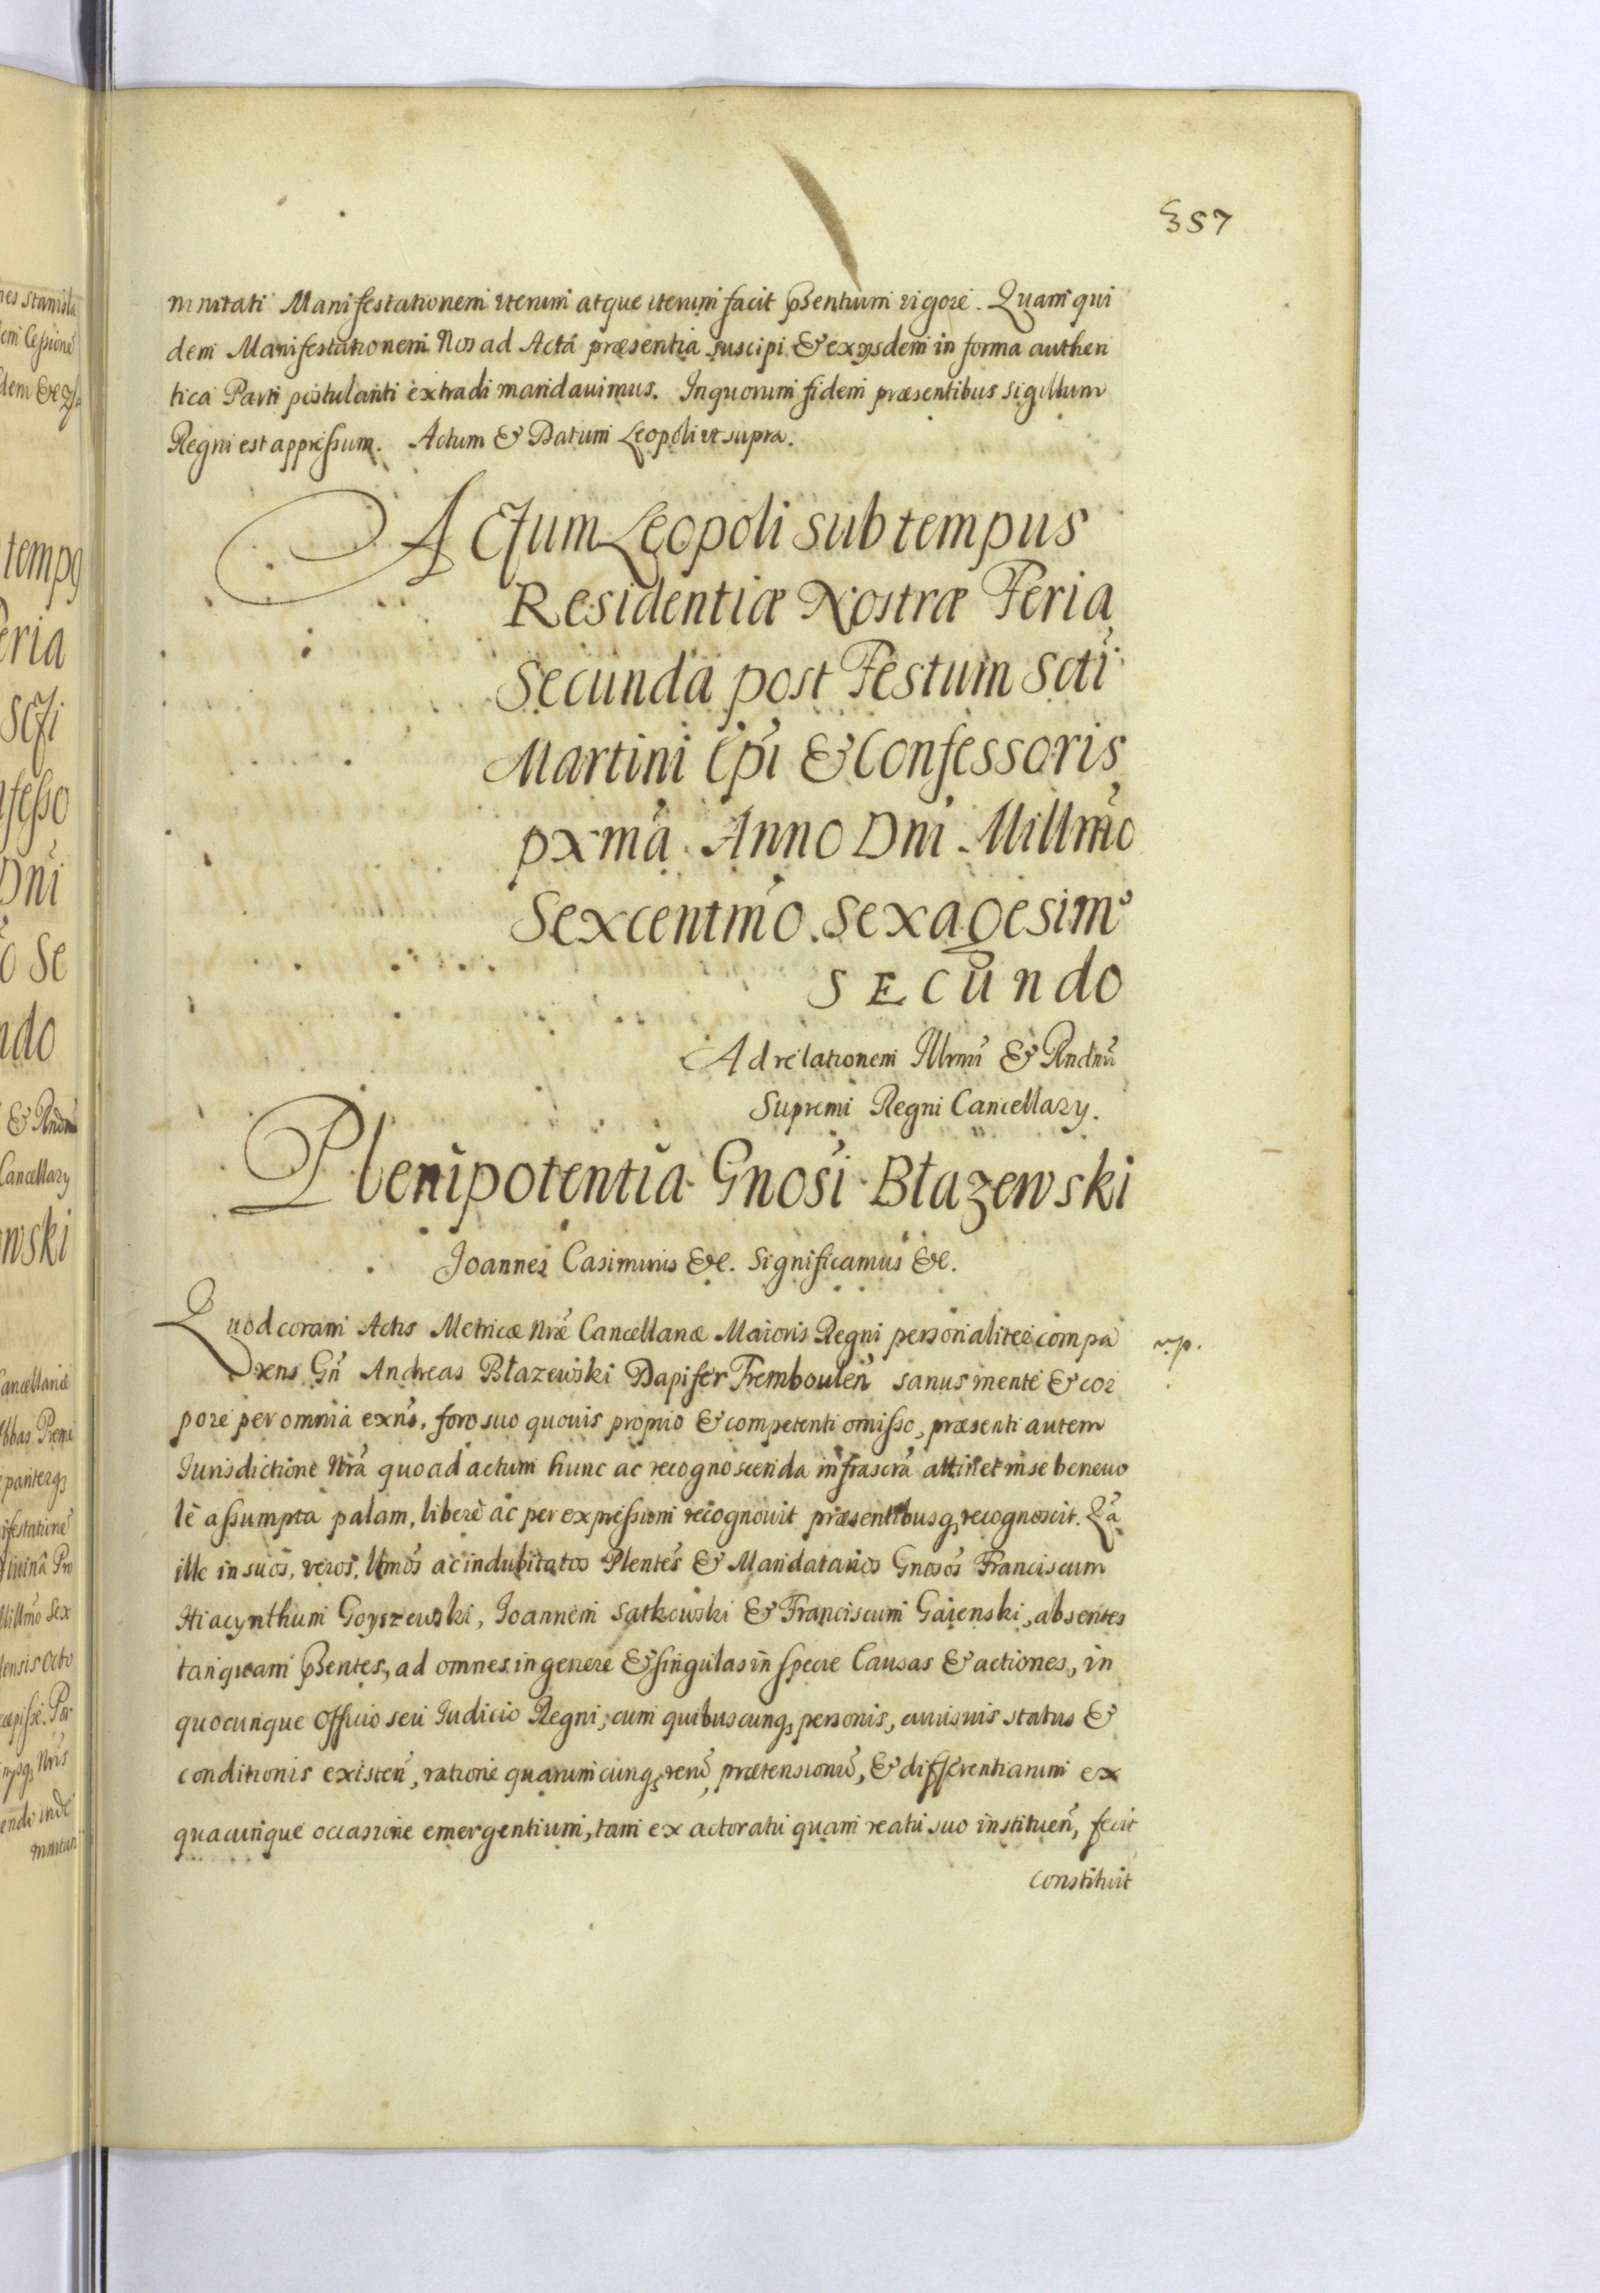 357
m nitati Manifestationem iterum atque iterum facit pṡentium vigore. Quam qui
dem Manifestationem Nos ad Acta præsentia suscipi & exijsdem in forma authen
tica Parti postulanti extradi mandauimus. Inquorum fidem præsentibus sigillum
Regni est appressum. Actum & Datum Leopoli ut supra.
Actum Leopoli sub tempus
Residentiæ Nostræ Feria
Secunda post Festum Scti
Martini Epi & Confessoris
pxma Anno Dni Millmo
Sexcentmo Sexagesimo
Secundo
Ad relationem Illrmi & Rndmi
Supremi Regni Cancellary.
Plenipotentia Gnosi Błazewski
Joannes Casimirus &c. Significamus &c.
Quod coram Actis Metricæ Nræ Cancellariæ Maioris Regni personaliter compa
rens Gn Andreas Błazewski Dapifer Tremboulen sanus mente & cor
pore per omnia exns, foro suo quouis proprio & competenti omisso, præsenti autem
Jurisdictione Nra quoad actum hunc ac recognoscenda infrascra attinet in se beneuo
le assumpta palam, libere ac per expressum recognouit præsentibusq recognoscit. Qa
ille in suos, veros, ltmos ac indubitatos Plentes & Mandatarios Gnosos Franciscum
Hiacynthum Goyszewski, Joannem Satkowski & Franciscum Gaienski, absentes
tanquam pṡentes, ad omnes in genere & singulas in specie Causas & actiones, in
quocunque Officio seu Iudicio Regni, cum quibuscunq personis, cuiusuis status &
conditionis existen, ratione quarumcunq reru, prætensionu, & differentiarum ex
quacunque occasione emergentium, tam ex actoratu quam reatu suo instituen, fecit
constituit